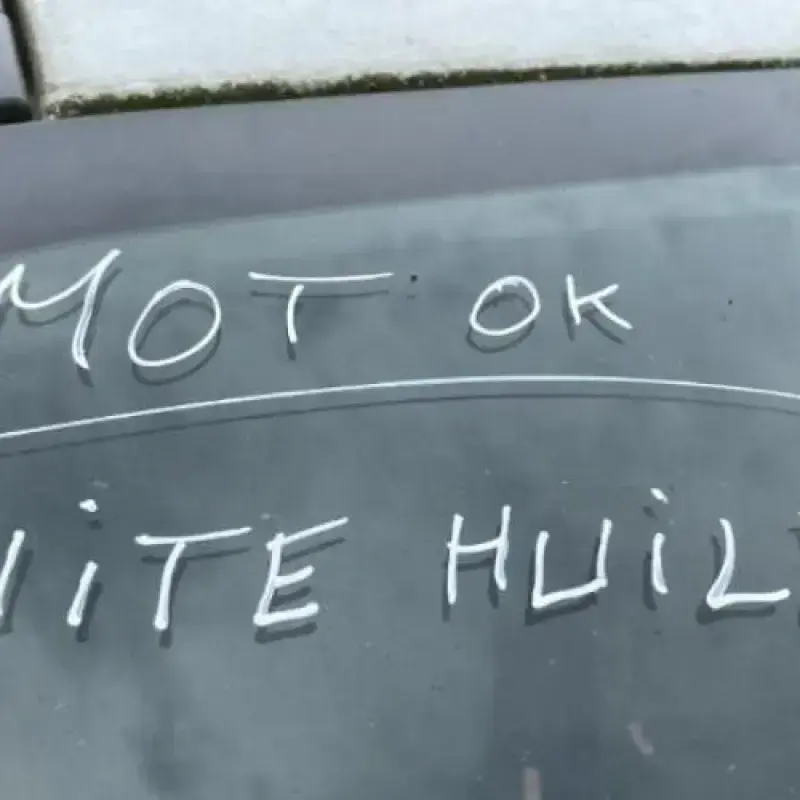 MOT OK
UiTE HUiL